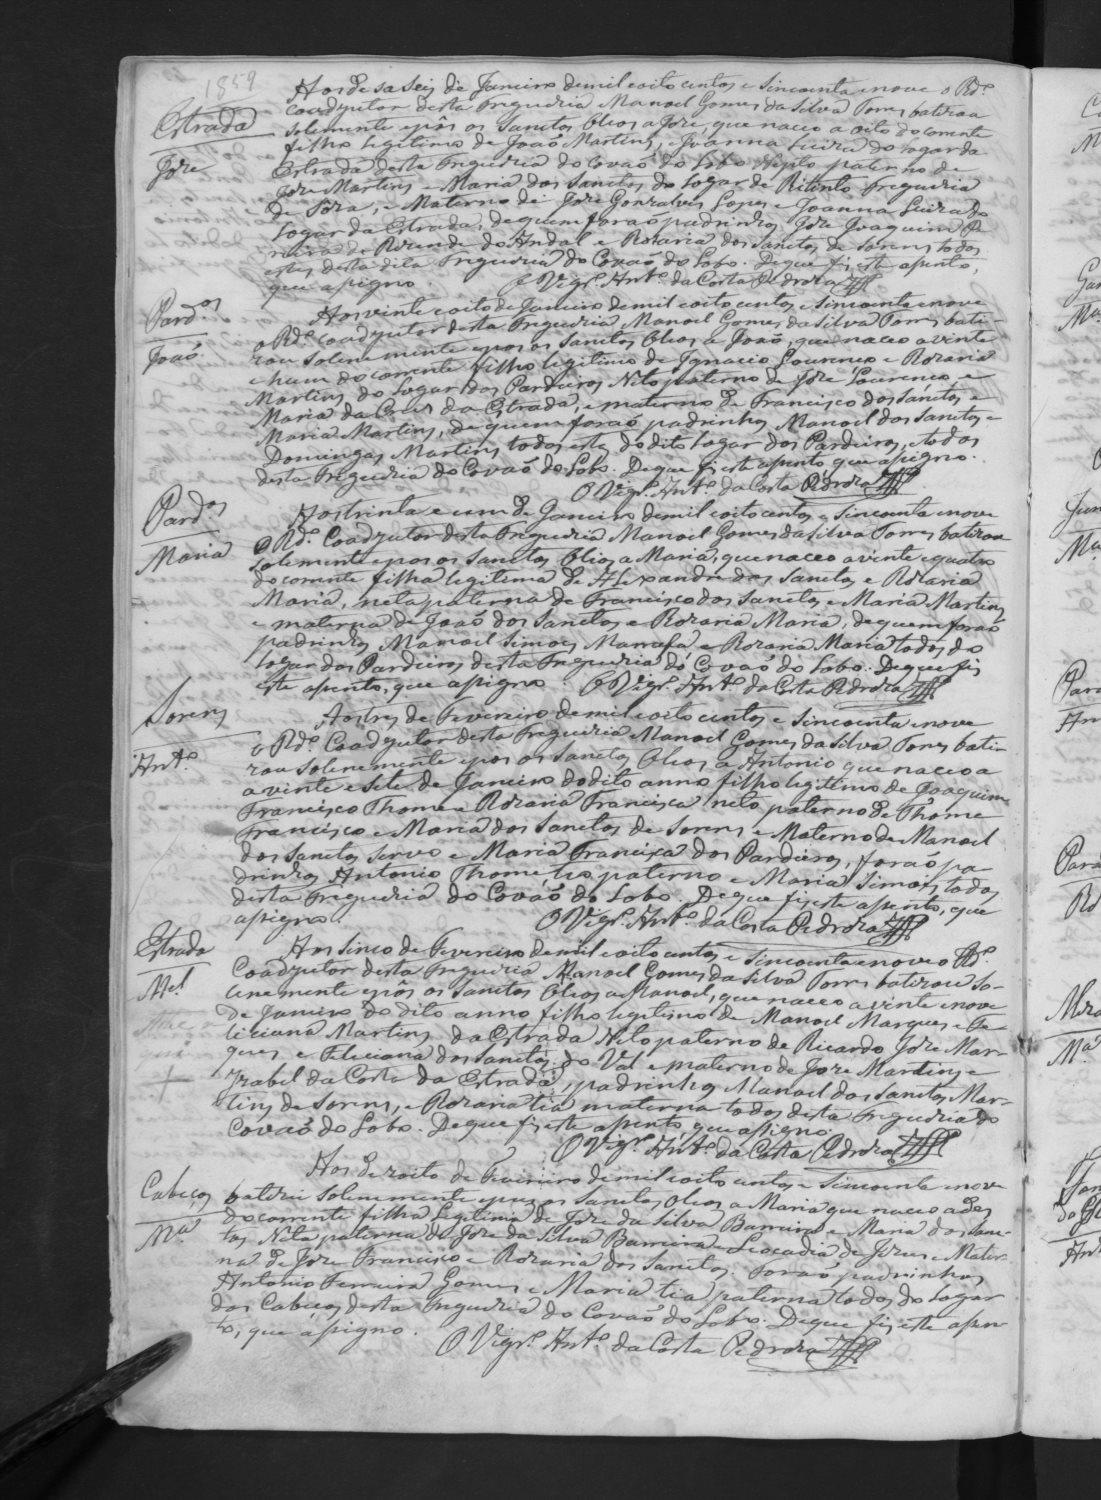 1859
Estrada
Joze
Aos desaseis de Janeiro de mil oito centos e sincoenta e nove o Rdº
coadyutor desta freguezia Manoel Gomes da Silva Torres batizou
solemente e pôs os Sanctos Oleos a Joze, que naceo a oito do corrente
filho legitimo de Joaõ Martins, e Joanna Luiza do Logar da
Estrada desta freguezia do Covaõ do Lobo Nepto paterno de
Joze Martins e Maria dos Sanctos do Logar de Ritinto freguezia
de Soza, e Materno de Joze Gonzalves Lopes e Joanna Luiza do
Logar da Estrada, de quem foraõ padrinhos Joze Joaquim
de Rezende do Andal e Rozaria dos Sanctos de Sorens todos
estes desta dita freguezia do Covaõ do Lobo. De que fis este asento,
que asigno. O Vigrº Antº da Costa Pedroza
Pardos
Joaõ
Aos vinte e oito de Janeiro de mil oito centos e sincoenta e nove
o Rdº Coadyutor desta freguezia Manoel Gomes da Silva Torres bati-
zou solenemente e pos os Sanctos Oleos a Joaõ, que naceo a vinte
e hum do corrente filho legitimo de Ignacio Lourenco e Rozaria
Martins do Logar dos Pardieiros Neto paterno de Joze Lourenco e
Maria da Cruz da Estrada, e materno de Francisco dos Sanctos e
Maria Martins, de quem foraõ padrinhos Manoel dos Sanctos e
Domingas Martins todos estes do dito logar dos Pardieiros, e todos
desta freguezia do Covaõ do Lobo. De que fis este asento que asigno.
O Vigrº Antº da Costa Pedroza
Pardos
Maria
Aos trinta e um de Janeiro de mil oito centos e sincoenta e nove
o Rdº Coadyutor desta freguezia Manoel Gomes da Silva Torres batizou
solemente e pos os Sanctos Oleos a Maria, que naceo a vinte e quatro
do corrente filha legitima de Alexandre dos Sanctos e Rozaria
Maria, neta paterna de Francisco dos Sanctos e Maria Martins
e materna de Joaõ dos Sanctos e Rozaria Maria, de quem foraõ
padrinhos Manoel Simões Marrafa e Rozaria Maria todos do
Logar dos Pardieiros desta freguezia do Covaõ do Lobo. De que fis
este asento, que asigno. O Vigrº Antº da Costa Pedroza
Sorens
Antº
Aos tres de Fevereiro de mil oito centos e sincoenta e nove
o Rdº Coadyutor desta freguezia Manoel Gomes da Silva Torres bati-
zou solenemente e pos os Sanctos Oleos a Antonio que naceo a
a vinte e sete de Janeiro do dito anno filho legitimo de Joaquim
Francisco Thome e Rozaria Francisca neto paterno de Thome
Francisco e Maria dos Sanctos de Sorens e Materno de Manoel
dos Sanctos Servo e Maria Francisca dos Pardieiros, foraõ pa-
drinhos Antonio Thome tio paterno e Maria Simões todos
desta freguezia do Covaõ do Lobo. De que fis este asento, que
asigno. O Vigrº Antº da Costa Pedroza
Estrada
Mel
Aos sinco de Fevereiro de mil oito centos e sincoenta e nove o Rdº
Coadyutor desta freguezia Manoel Gomes da Silva Torres batizou so-
lenemente e pôs os Sanctos Oleos a Manoel, que naceo a vinte e nove
de Janeiro do dito anno filho legitimo de Manoel Marques e Fe-
liciana Martins da Estrada Neto paterno de Ricardo Joze Mar-
ques e Feliciana dos Sanctos do Val e materno de Joze Martins e
Izabel da Costa da Estrada, padrinhos Manoel dos Sanctos Mar-
tins de Sorens, e Rozaria tia materna todos desta freguezia do
Covaõ do Lobo. De que fis este asento que asigno.
O Vigrº Antº da Costa Pedroza
Cabeços
Mª
Aos dezoito de Fevereiro de mil oito centos e sincoenta e nove
batizei solenemente e pus os Sanctos Oleos a Maria que naceo a des
do corrente filha Legitima de Joze da Silva Barreira e Maria dos Sanc-
tos Neta paterna de Joze da Silva Barreira e Leocadia de Jezus e Mater-
na de Joze Francisco e Rozaria dos Sanctos. Foraõ padrinhos
Antonio Ferreira Gomes e Maria tia paterna todos do Logar
dos Cabeços desta freguezia do Covaõ do Lobo. De que fis este asen-
to, que asigno. O Vigrº Antº da Costa Pedroza